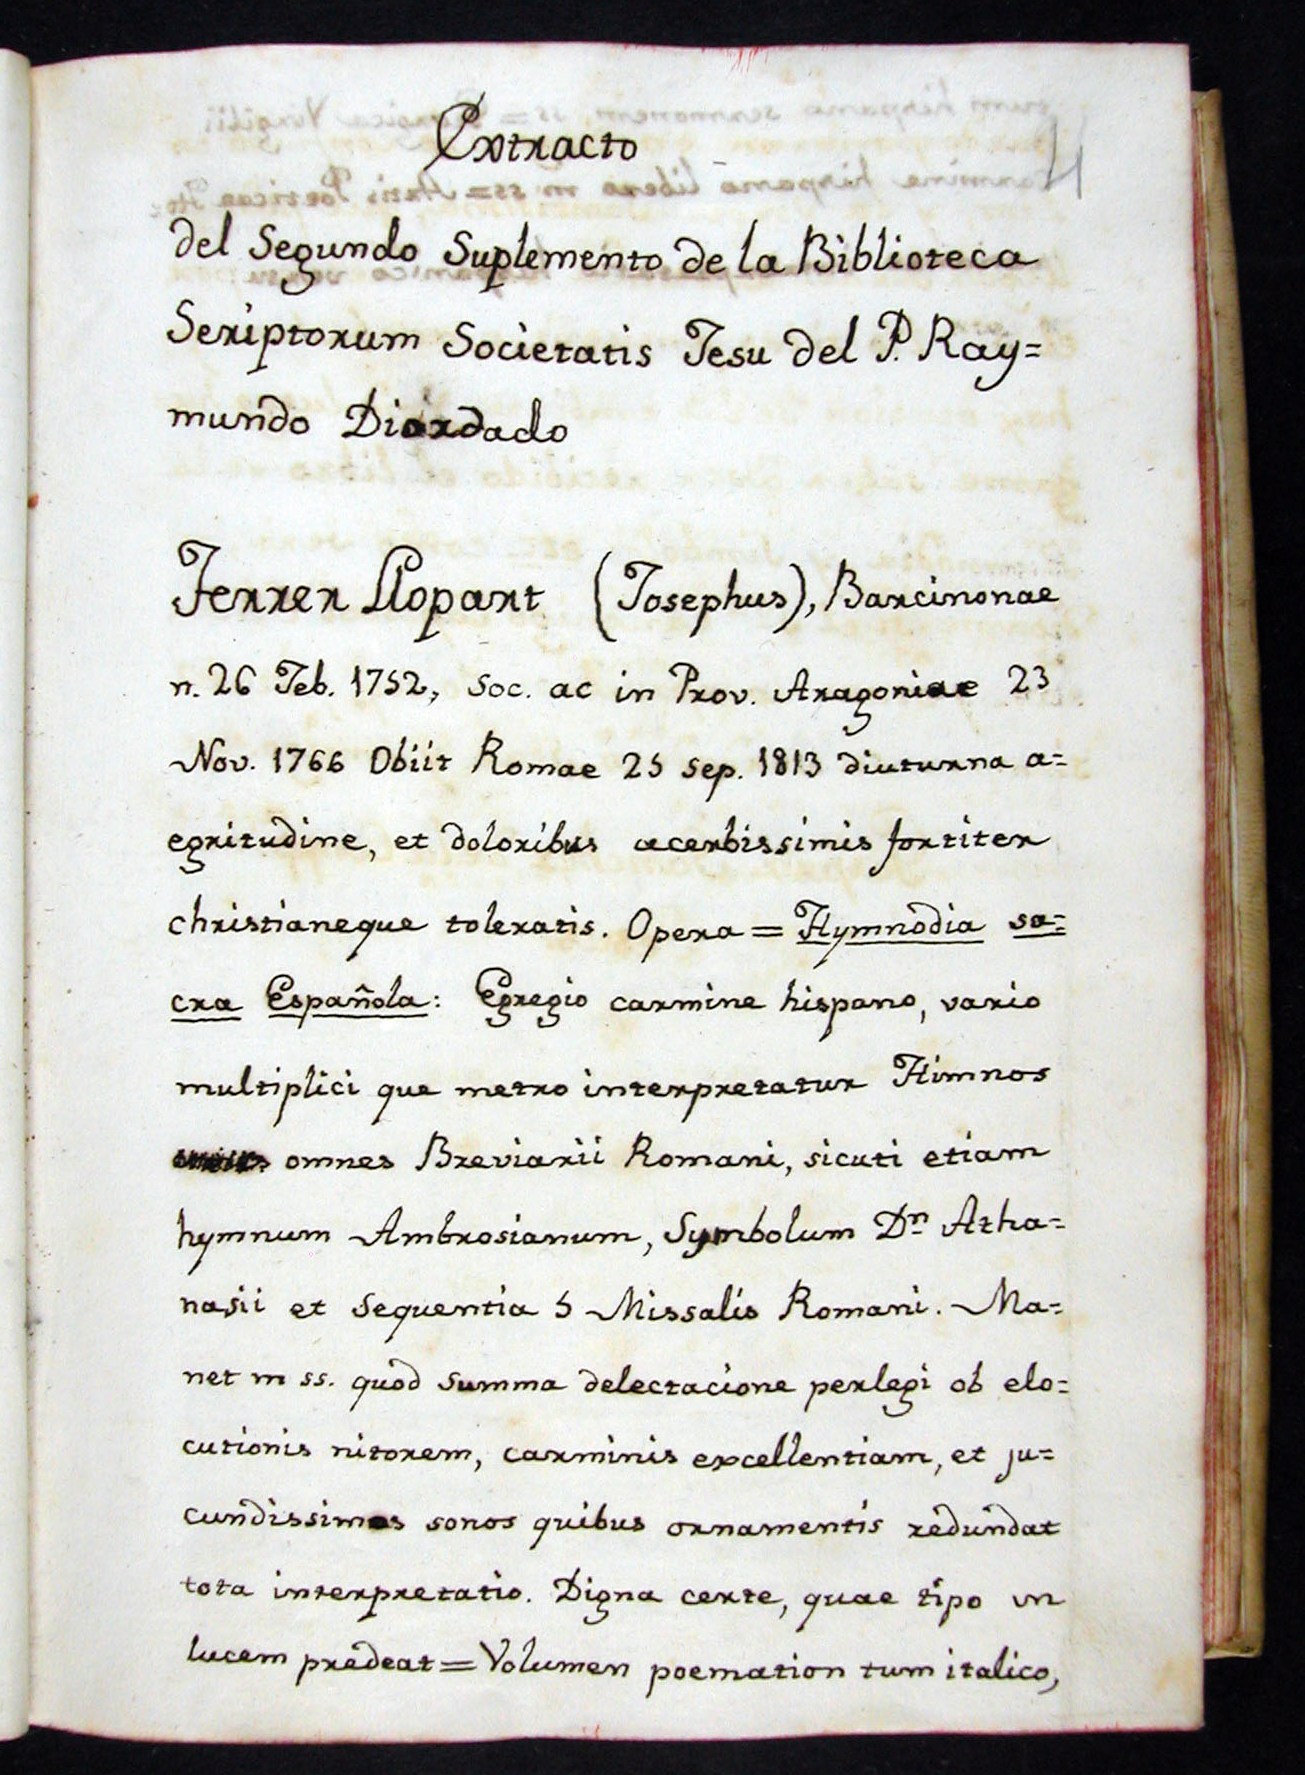 Extracto
del Segundo Suplemento de la Biblioteca
Scriptorum Societatis Jesu del P. Ray=
mundo Diosdado
Ferrer Llopart (Josephus), Barcinonae
n. 26 Feb. 1752, Soc. ac in Prov. Aragoniae 23
Nov. 1766 Obiit Romae 25 sep. 1813 diuturna a=
egritudine, et doloribus acerbissimis fortiter
christianeque toleratis. Opera = Hymnodia sa=
cra Española: Egregio carmine hispano, vario
multiplici que metro interpretatur Himnos
omnes Breviarii Romani, sicuti etiam
hymnum Ambrosianum, Symbolum Dn Atha=
nasii et Sequentia 5 Missalis Romani. Ma=
net m ss. quod summa delectacione perlegi ob elo=
cutionis nitorem, carminis excellentiam, et ju=
cundissimos sonos quibus ornamentis redundat
tota interpretatio. Digna certe, quae tipo in
lucem prodeat = Volumen poemation tum italico,